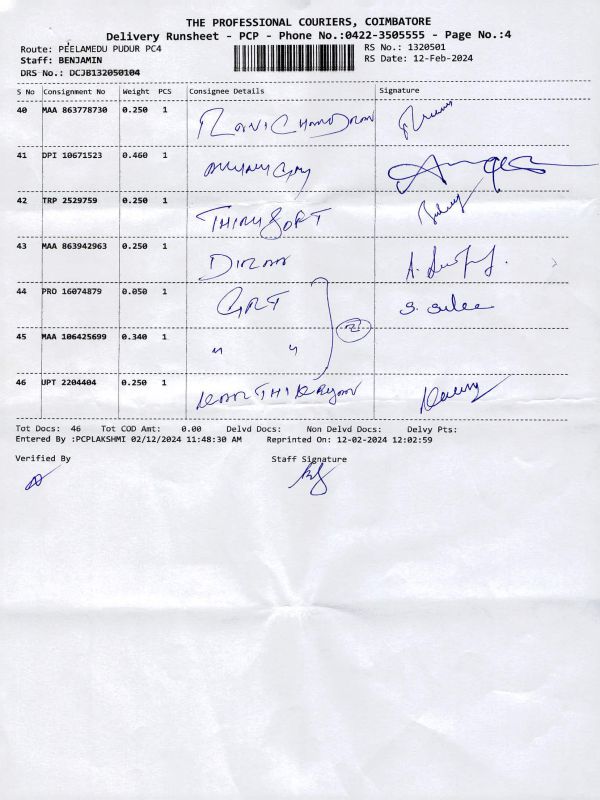 THE PROFESSIONAL COURIERS, COIMBATORE
Delivery Runsheet - PCP - Phone No.:0422-3505555 - Page No.:4
Route: PEELAMEDU PUDUR PC4 RS No.: 1320501
Staff: BENJAMIN RS Date: 12-Feb-2024
DRS No.: DCJB132050104
S No Consignment No Weight PCS Consignee Details Signature
40 MAA 863778730 0.250 1 RAVICHANDRAN
41 DPI 10671523 0.460 1
42 TRP 2529759 0.250 1 THIRUSOFT
43 MAA 863942963 0.250 1
44 PRO 16074879 0.050 1 GRT
45 MAA 106425699 0.340 1 " "
46 UPT 2204404 0.250 1
Tot Docs: 46 Tot COD Amt: 0.00 Delvd Docs: Non Delvd Docs: Delvy Pts:
Entered By :PCPLAKSHMI 02/12/2024 11:48:30 AM Reprinted On: 12-02-2024 12:02:59
Verified By Staff Signature